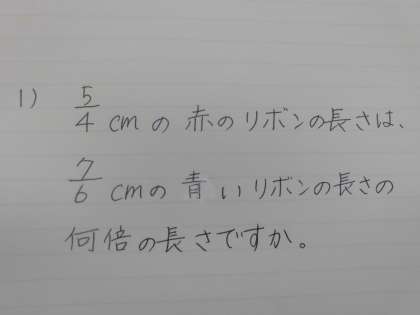 1) 5/4 cm の 赤のリボンの長さは、
7/6 cmの 青いリボンの長さの
何倍の長さですか。